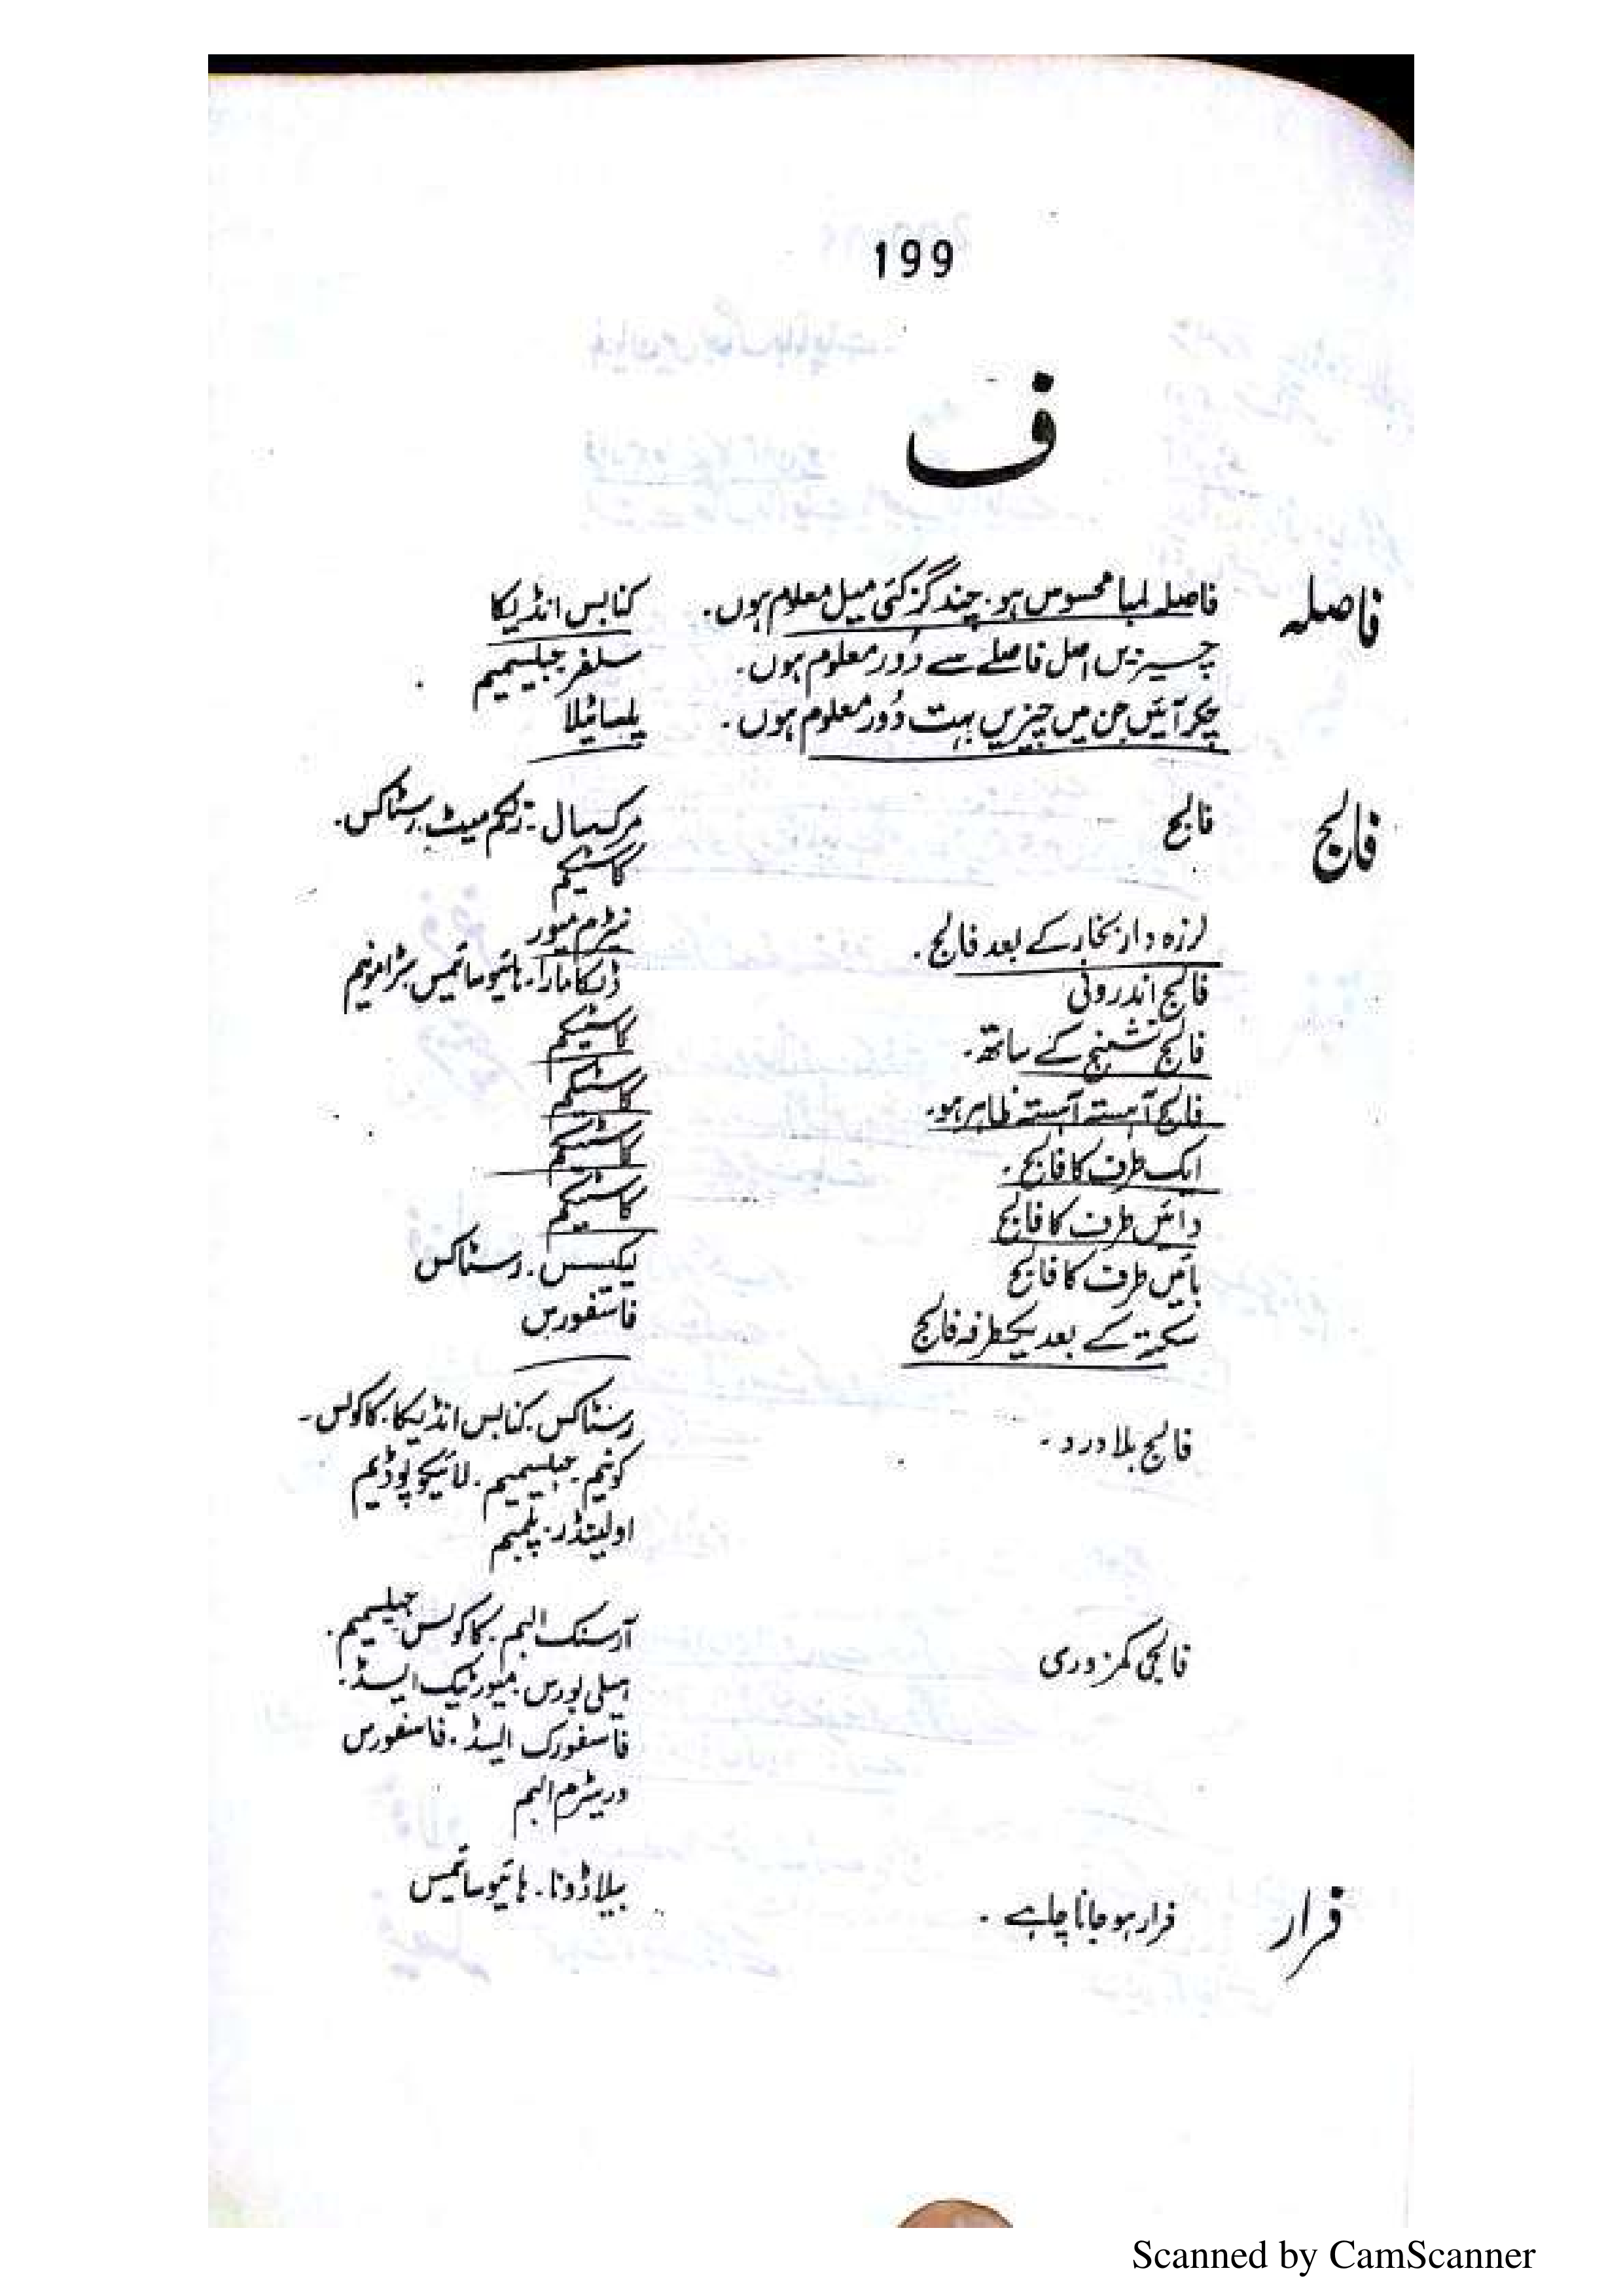 199
ف
فاصلہ فاصلہ لمبا محسوس ہو۔ چند گز کئی میل معلوم ہوں۔ کنابس انڈیکا
چیزیں اصل فاصلے سے دُور معلوم ہوں۔ سلفر جیلسیمیم
چکر آئیں جن میں چیزیں بہت دُور معلوم ہوں۔ پلساٹیلا
فالج فالج مرکسال۔ زنکم میٹ۔ رسٹاکس۔
کاسٹیکم
لرزہ دار بخار کے بعد فالج۔ نیٹرم میور
فالج اندرونی ڈلکامارا۔ ہائیوسائمس سٹرامونیم
فالج تشنج کے ساتھ۔ کاسٹیکم
فالج آہستہ آہستہ ظاہر ہو۔ کاسٹیکم
ایک طرف کا فالج۔ کاسٹیکم
دائیں طرف کا فالج کاسٹیکم
بائیں طرف کا فالج لیکیسس۔ رسٹاکس
سکتہ کے بعد یکطرفہ فالج فاسفورس
فالج بلا درد۔ رسٹاکس۔ کنابس انڈیکا۔ کاکولس۔
کونیم۔ جیلسیمیم۔ لائیکوپوڈیم
اولینڈر۔ پلمبم
فالجی کمزوری آرسنک البم۔ کاکولس جیلسیمیم۔
ہیلی بورس۔ میورٹیک ایسڈ۔
فاسفورک ایسڈ۔ فاسفورس
وریٹرم البم
فرار فرار ہو جانا چاہے۔ بیلاڈونا۔ ہائیوسائمس
Scanned by CamScanner